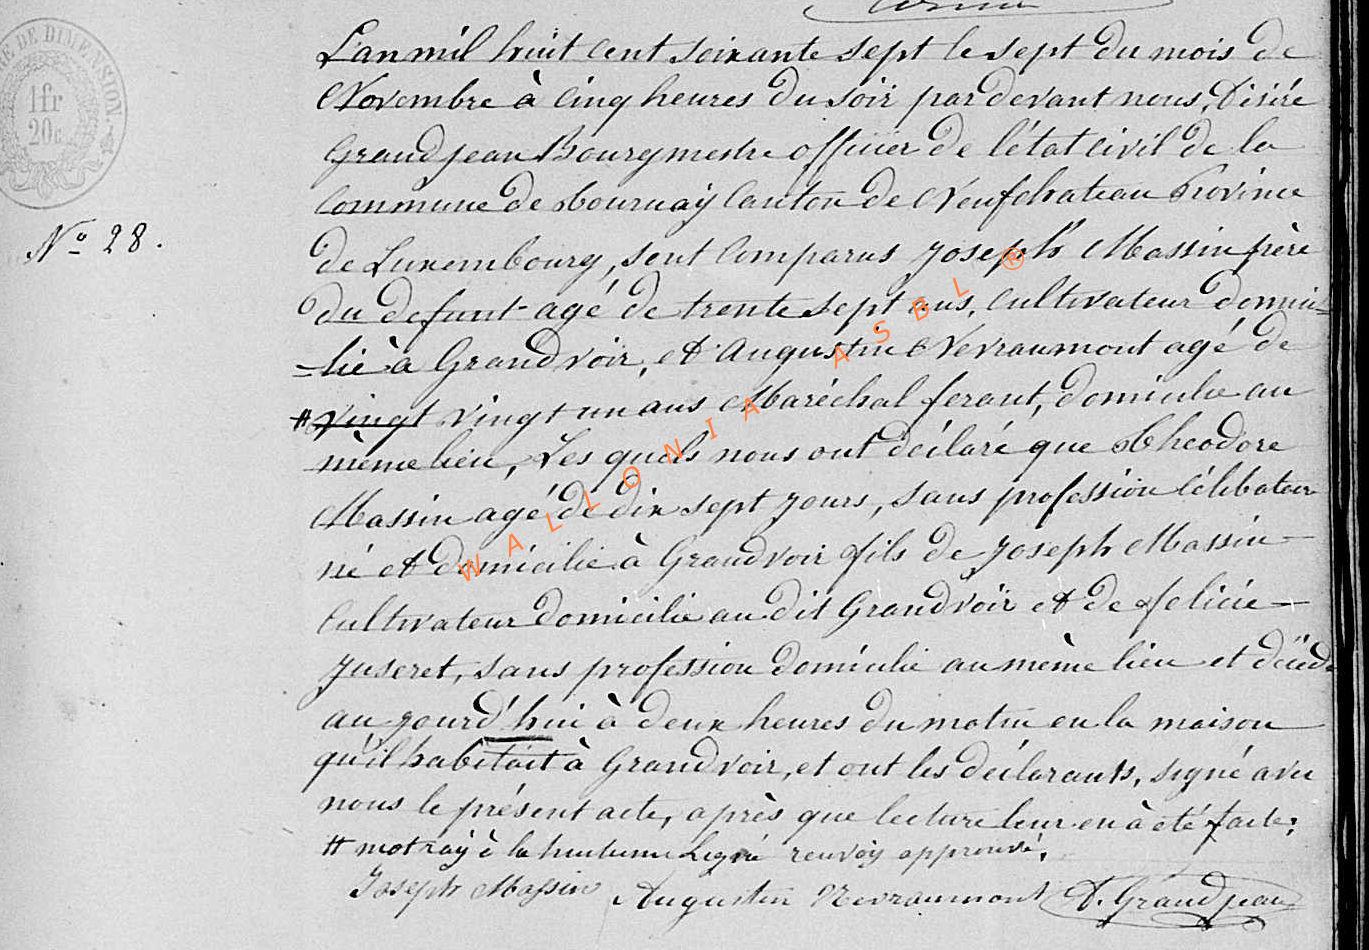 L'an mil huit cent soixante sept le sept du mois de
Novembre à cinq heures du soir par devant nous, Désiré
Grandjean Bourgmestre officier de l'état civil de la
Commune de Tournaÿ Canton de Neufchateau Province
de Luxembourg, sont Comparus Joseph Massin père
du defunt agé de trente sept ans, Cultivateur domici=
=lié à Grandvoir, et Augustin Nevraumont agé de
# vingt vingt un ans Maréchal ferant, domicilié au
N° 28.
même lieu, Les quels nous ont déclaré que Théodore
Massin agé de dix sept jours, sans profession Célibataire
né et domicilié à Grandvoir fils de Joseph Massin
Cultivateur domicilié au dit Grandvoir et de felicie
Juseret, sans profession domicilié au même lieu et décédé
aujourd'hui à deux heures du matin en la maison
qu'il habitait à Grandvoir, et ont les déclarants, signé avec
nous le présent acte, après que lecture leur en à été faite;
# mot raÿé à la huitieme Ligne renvoÿ approuvé.
Joseph Massin Augustin Nevraumont D. Grandjean
RE DE DIMENSION.
1fr
20c
WALLONIA ASBL ®